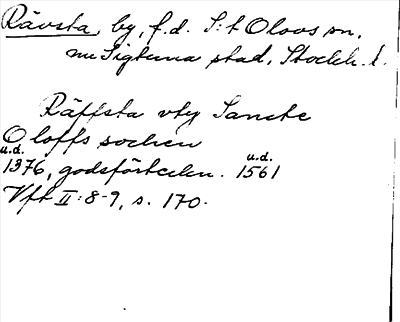 Rävsta, by, f.d. S:t Olovs sn,
nu Sigtuna stad, Stockh. l.
Räffsta vthj Sancte
Oloffs sochen
u.d. u.d.
1376, godsförteckn. 1561
Vft II:8-9, s. 170.